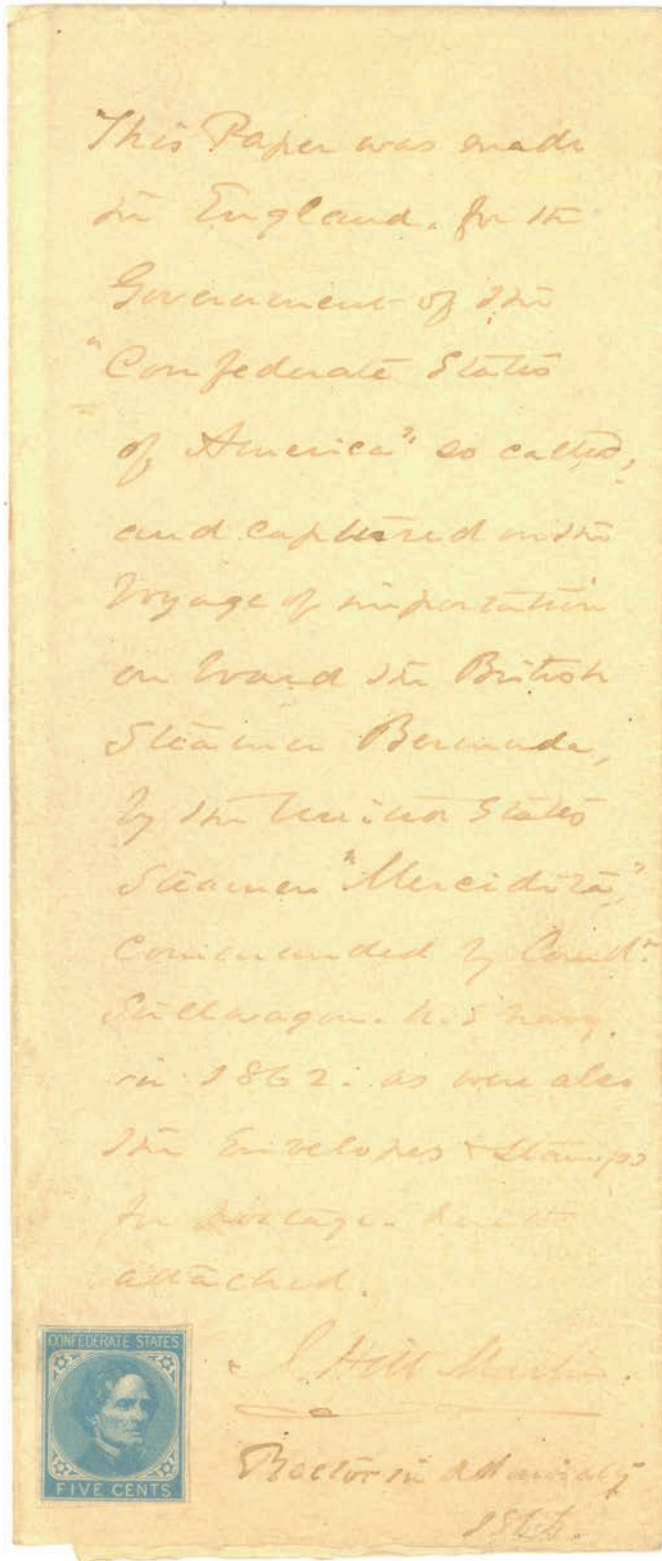 This Paper was made
in England. for the
Government of the
"Confederate States
of America" so called,
and captured on the
Voyage of importation
on board the British
Steamer Bermuda,
by the United States
Steamer "Mercidita"
Commanded by Comd.r
Stellwagon. U.S Navy.
in 1862. as were also
the Envelopes & Stamps
for postage
attached.
J. Hill Martin.
CONFEDERATE STATES
FIVE CENTS
Proctor in Admiralty